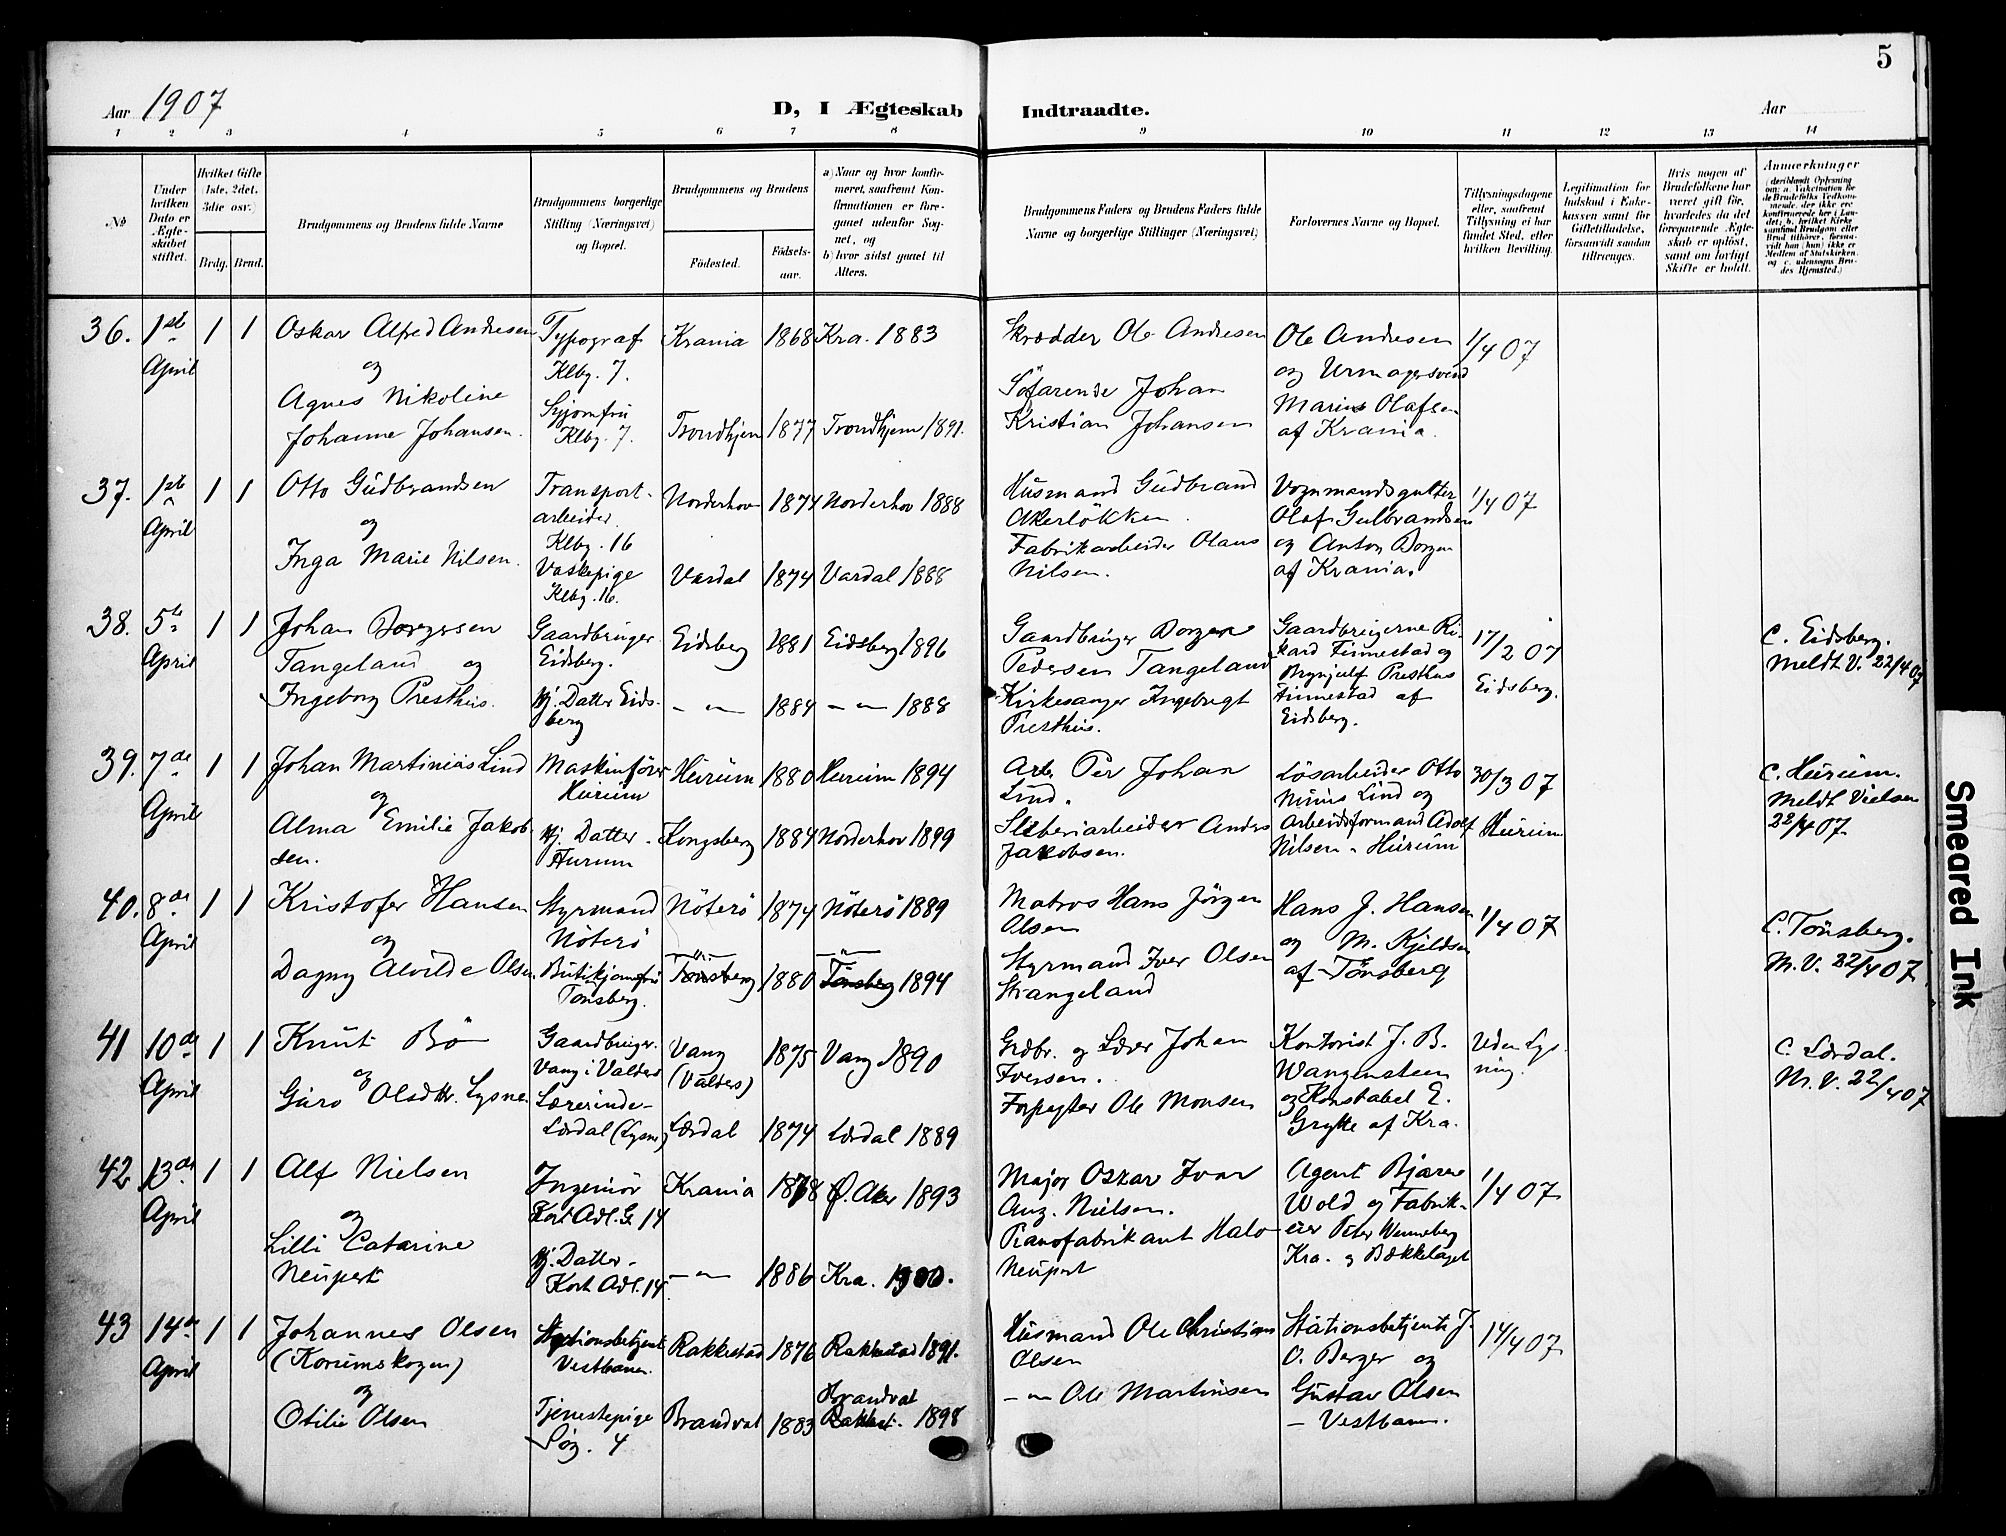 5
Aar 1907
D, I Ægteskab Indtraadte.
Aar
1 2 3 4 5 6 7 8 9 10 11 12 13 14
No
Under hvilken Dato er Ægteskabet stiftet.
Hvilket Gifte (1ste, 2det, 3die osv.)
Brdg. Brud.
Brudgommens og Brudens fulde Navne
Brudgommens borgerlige Stilling (Næringsvei) og Bopæl.
Brudgommens og Brudens
Fødested.
Fødselsaar.
a) Naar og hvor konfirmeret, saafremt Konfirmationen er foregaaet udenfor Sognet, og
b) hvor sidst gaaet til Alters.
Brudgommens Faders og Brudens Faders fulde Navne og borgerlige Stillinger (Næringsvei)
Forlovernes Navne og Bopæl.
Tillysningsdagene eller, saafremt Tillysning ei har fundet Sted, efter hvilken Bevilling.
Legitimation for Indskud i Enkekassen samt for Giftetilladelse, forsaavidt saadan tiltrænges.
Hvis nogen af Brudefolkene har været gift før, hvorledes da det foregaaende Ægteskab er opløst, samt om lovligt Skifte er holdt.
Anmærkninger
36. 1ste April 1 1
Oskar Alfred Andresen
og
Agnes Nikoline
Johanne Johansen.
Typograf
Klbg. 7.
Syjomfru
Klbg. 7.
Krania 1868 Kra. 1883
Trondhjem 1877 Trondhjem 1891.
Skrædder Ole Andresen
Söfarende Johan
Kristian Johansen
Ole Andresen
og Urmagersvend
Marius Olafsen
af Krania.
1/4 07
37. 1ste April 1 1
Otto Gudbrandsen
og
Inga Marie Nilsen.
Transport-
arbeider.
Klbg. 16
Vaskepige
Klbg. 16.
Norderhov 1874 Norderhov 1888
Vardal 1874 Vardal 1888
Husmand Gudbrand
Akerlökken
Fabrikarbeider Olaus
Nilsen.
Vognmandsgutter
Olaf Gulbrandsen
og Anton Borgen
af Krania.
1/4 07
38. 5te April 1 1
Johan Borgersen
Tangeland og
Ingeborg Presthus.
Gaardbruger
Eidsberg.
Hj. Datter Eids-
berg
Eidsberg 1881 Eidsberg 1896
— " — 1884 — " — 1888
Gaardbruger Borger
Pedersen Tangeland
Kirkesanger Ingebrigt
Presthus.
Gaardbrugerne Ri-
kard Finnestad og
Brynjulf Presthus
Finnestad af
Eidsberg.
17/2 07
Eidsberg.
C. Eidsberg.
Meldt V. 22/4 07
39. 7de April 1 1
Johan Martinius Lind
og
Alma Emilie Jakob-
sen.
Maskinfører
Hurum
Hj. Datter -
Hurum
Hurum 1880 Hurum 1894
Kongsberg 1884 Norderhov 1899
Arb. Per Johan
Lind.
Sliberiarbeider Anders
Jakobsen.
Lösarbeider Otto
Ninius Lind og
Arbeidsformand Adolf
Nilsen - Hurum
30/3 07
Hurum
C. Hurum.
Meldt Vielsen
22/4 07
40. 8de April 1 1
Kristofer Hansen
og
Dagny Alvilde Olsen
Styrmand
Nöterö
Butikjomfru
Tönsberg.
Nöterö 1874 Nöterö 1889
— " —
Tönsberg 1880
— " —
Tönsberg 1894
Matros Hans Jörgen
Olsen
Styrmand Iver Olsen
Strangeland
Hans J. Hansen
og M. Kjeldsen
af Tönsberg
1/4 07
C. Tönsberg.
M.V. 22/4 07
41 10de April 1 1
Knut Bö
og
Guro Olsdtr. Lysne
Gaardbruger.
Vang i Valders
Lærerinde-
Lærdal (Lysne)
Vang
(Valders) 1875 Vang 1890
Lærdal 1874 Lærdal 1889
Grdbr. og Lærer Johan
Iversen.
Forpagter Ole Monsen
Kontorist J. B.
Wangensteen
og Konstabel E.
Grytte af Kra.
Uden Lys-
ning.
C. Lærdal.
M.V. 22/4 07
42 13de April 1 1
Alf Nielsen
og
Lilli Catarine
Neupert
Ingeniör
Kort Adl. G. 14
Hj. Datter -
Kort Adl. 14
Krania 1878 Ø. Aker 1893
— " — 1886 Kra. 1900.
Major Oskar Ivar
Aug. Nielsen.
Pianofabrikant Halv
Neupert
Agent Bjarne
Wold og Fabrik-
eier Peter Wenneberg
Kra. og Bækkelaget
1/4 07
43 14de April 1 1
Johannes Olsen
(Korumskogen)
og
Otilie Olsen
Stationsbetjent
Vestbanen
Tjenestepige
Søg. 4
Rakkestad 1876 Rakkestad 1891.
Brandval 1883
Brandval
Rakkest. 1898
Husmand Ole Christian
Olsen
— " — Ole Martinsen
Stationsbetjente J.
O. Berger og
Gustav Olsen
- Vestbanen.
14/4 07
Smeared Ink